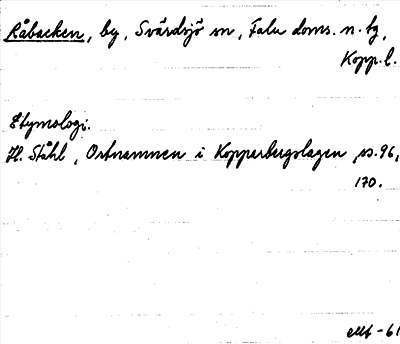 Råbacken, by, Svärdsjö sn, Falu doms. n. tg,
Kopp. l.
Etymologi.
H. Ståhl, Ortnamnen i Kopparbergslagen, s. 96,
170.
-61